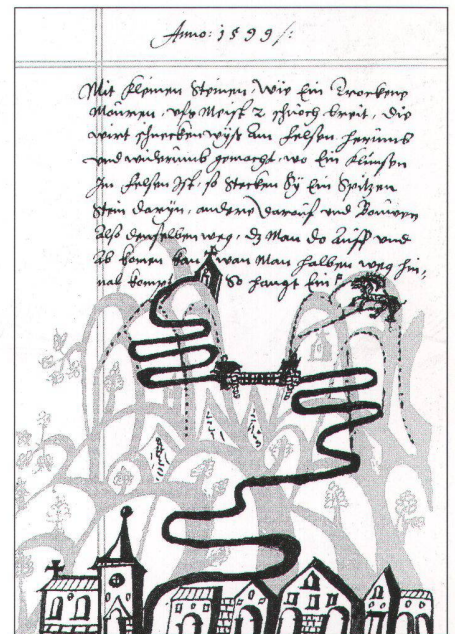 Anno: 1599 /:
Mit Kleinen Steinen, Wie Ein Trockene
Mauren, vfs Meist 2 schuoch breit, die
wirt schneckenwyse am felsen herumb
vnd widerumb gemacht, wo Ein Klunsen
In felsen Ist, so stecken Sy Ein Spitzen
Stein daryn, andere darauf vnd Bouwen
Also denselben weg, dz Man do Auff vnd
Ab komen kan, wan Man halben weg hin,
nal kompt So hangt Ein